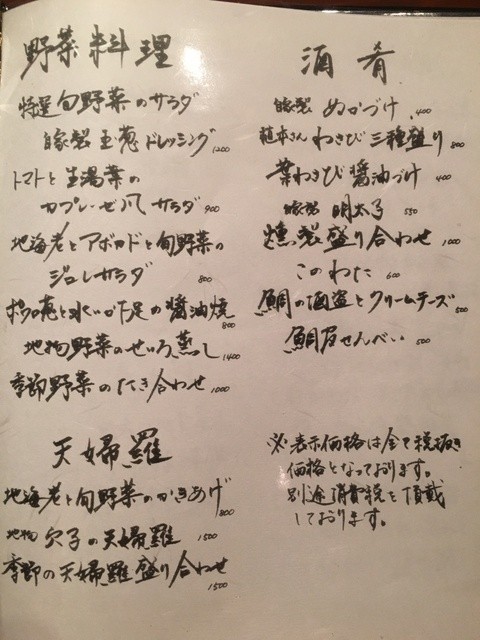 野菜料理
特選旬野菜のサラダ
自家製玉葱ドレッシング 1200
トマトと生湯葉の
カプレーゼ風サラダ 900
地海老とアボカドと旬野菜の
ジュレサラダ 800
と水いか下足の醤油焼 800
地物野菜のせいろ蒸し 1400
季節野菜のたき合わせ 1000
天婦羅
地海老と旬野菜のかきあげ 800
地物穴子の天婦羅 1500
季節の天婦羅盛り合わせ 1500
酒肴
自家製ぬかづけ 400
植本さんわさび三種盛り 800
葉わさび醤油づけ 400
自家製明太子 550
燻製盛り合わせ 1000
このわた 600
鯛の酒盗とクリームチーズ 500
鯛屋せんべい 500
※表示価格は全て税抜き
価格となっております。
別途消費税を頂戴
しております。